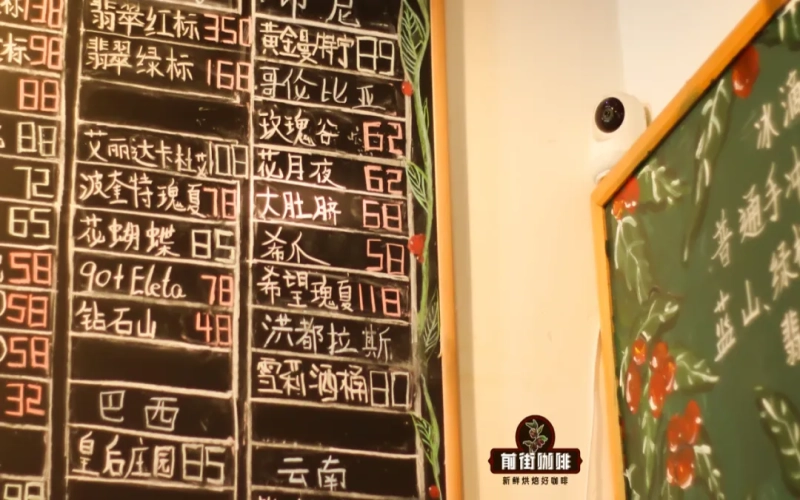 138
标98
88
88
72
65
58
58
58
32
翡翠红标350
翡翠绿标168
艾丽达卡杜艾108
波奎特瑰夏78
花蝴蝶85
90+Eleta 78
钻石山48
巴西
皇后庄园85
印尼
黄金曼特宁89
哥伦比亚
玫瑰谷62
花月夜62
大肚脐68
希爪58
希望瑰夏118
洪都拉斯
雪莉酒桶80
云南
冰滴
普通手冲
蓝山、绿标
翡
前街咖啡
新鲜烘焙好咖啡